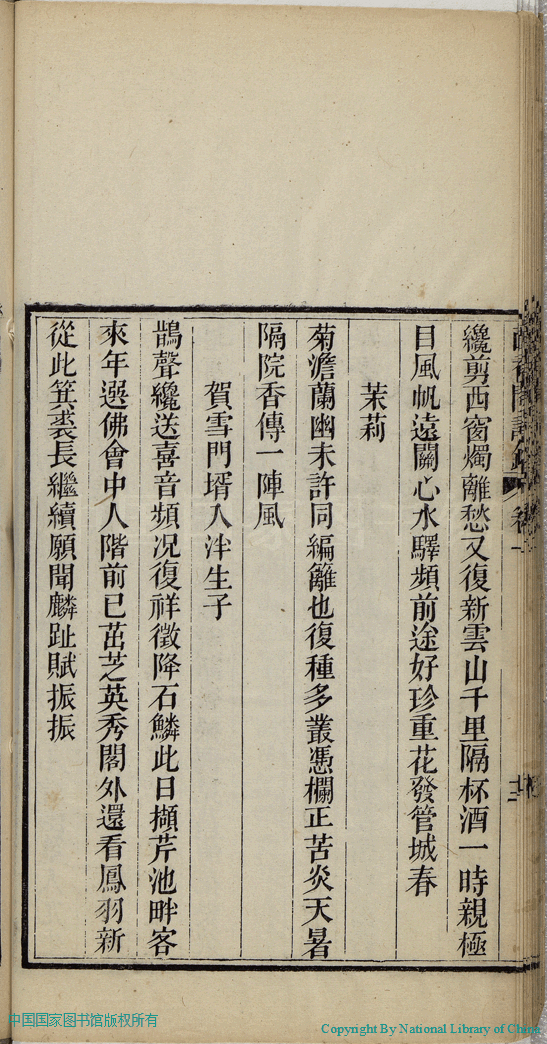 纔剪西窗燭離愁又復新雲山千里隔杯酒一時親極
目風帆遠關心水驛頻前途好珍重花發管城春
茉莉
菊澹蘭幽未許同編籬也復種多叢憑欄正苦炎天暑
隔院香傳一陣風
賀雪門壻入泮生子
鵲聲纔送喜音頻況復祥徵降石麟此日擷芹池畔客
來年選佛會中人階前已茁芝英秀閣外還看鳳羽新
從此箕裘長繼續願聞麟趾賦振振
中国国家图书馆版权所有
Copyright By National Library of China